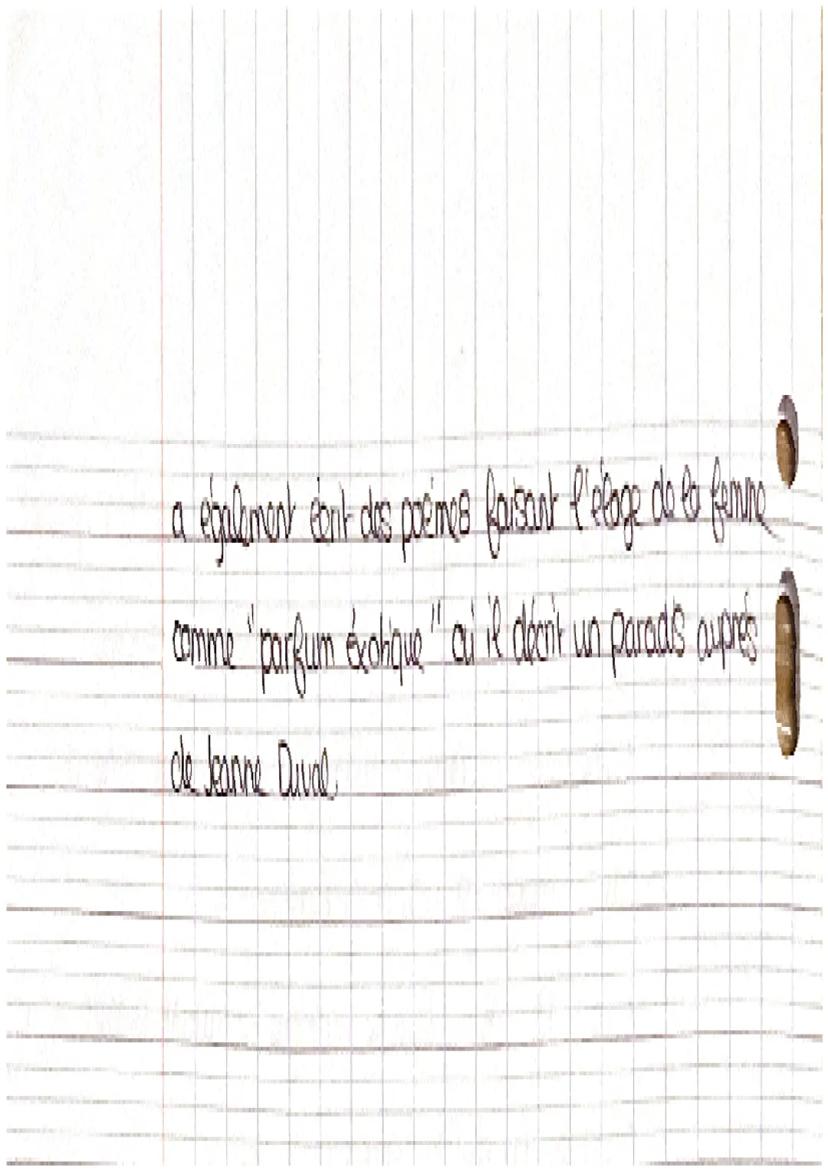 a également écrit des poèmes faisant l'éloge de la femme
comme "parfum éxotique" où il décrit un paradis auprès
de Jeanne Duval